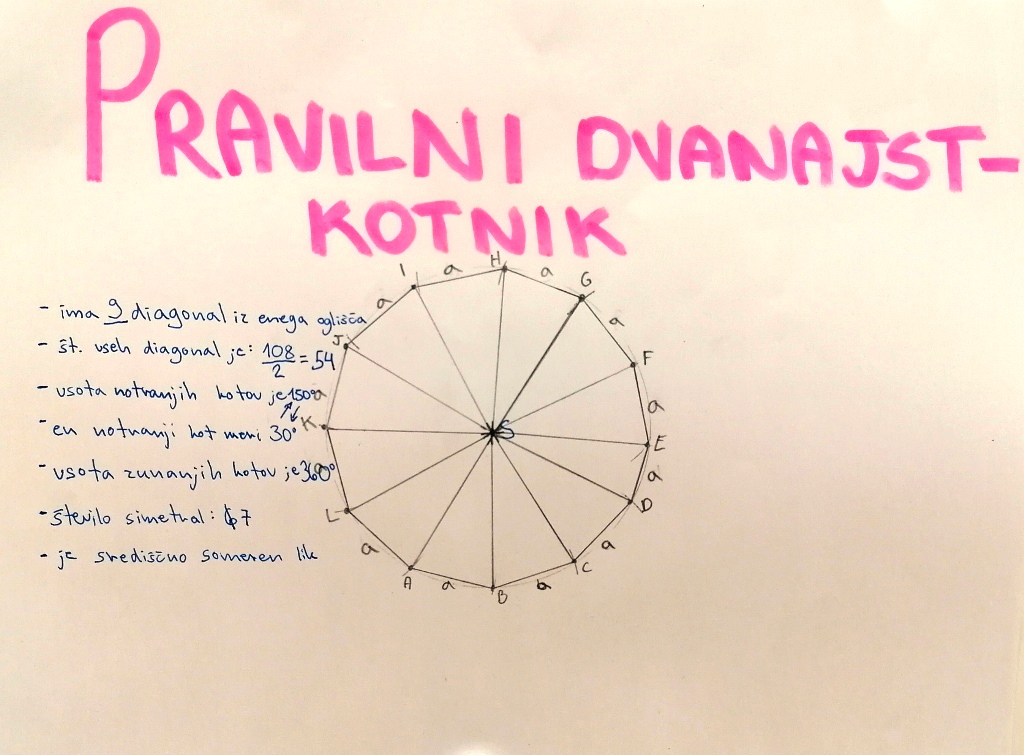 PRAVILNI DVANAJST-
KOTNIK
- ima 9 diagonal iz enega oglišča
- št. vseh diagonal je: 108/2 = 54
- vsota notranjih kotov je 150°
- en notranji kot meri 30°
- vsota zunanjih kotov je 360°
- število simetral: 7
- je središčno someren lik
I a H a G
a a
J F
a a
K S E
a a
L D
a a
A a B a C